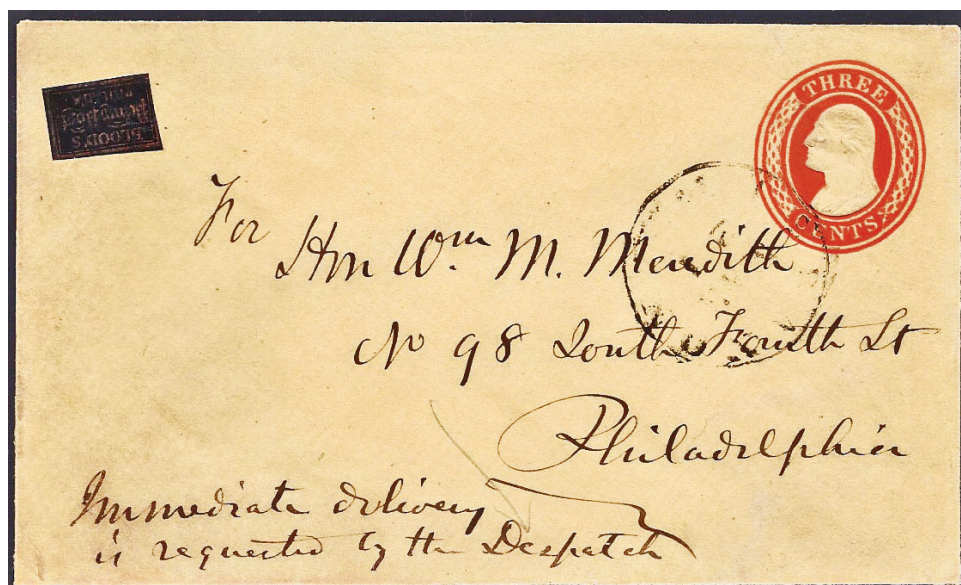 BLOOD'S
Penny Post
PHILADA
THREE
CENTS
For
Hon Wm. M. Meredith
No 98 South Fourth St
Philadelphia
Immediate delivery
is requested by the Despatch